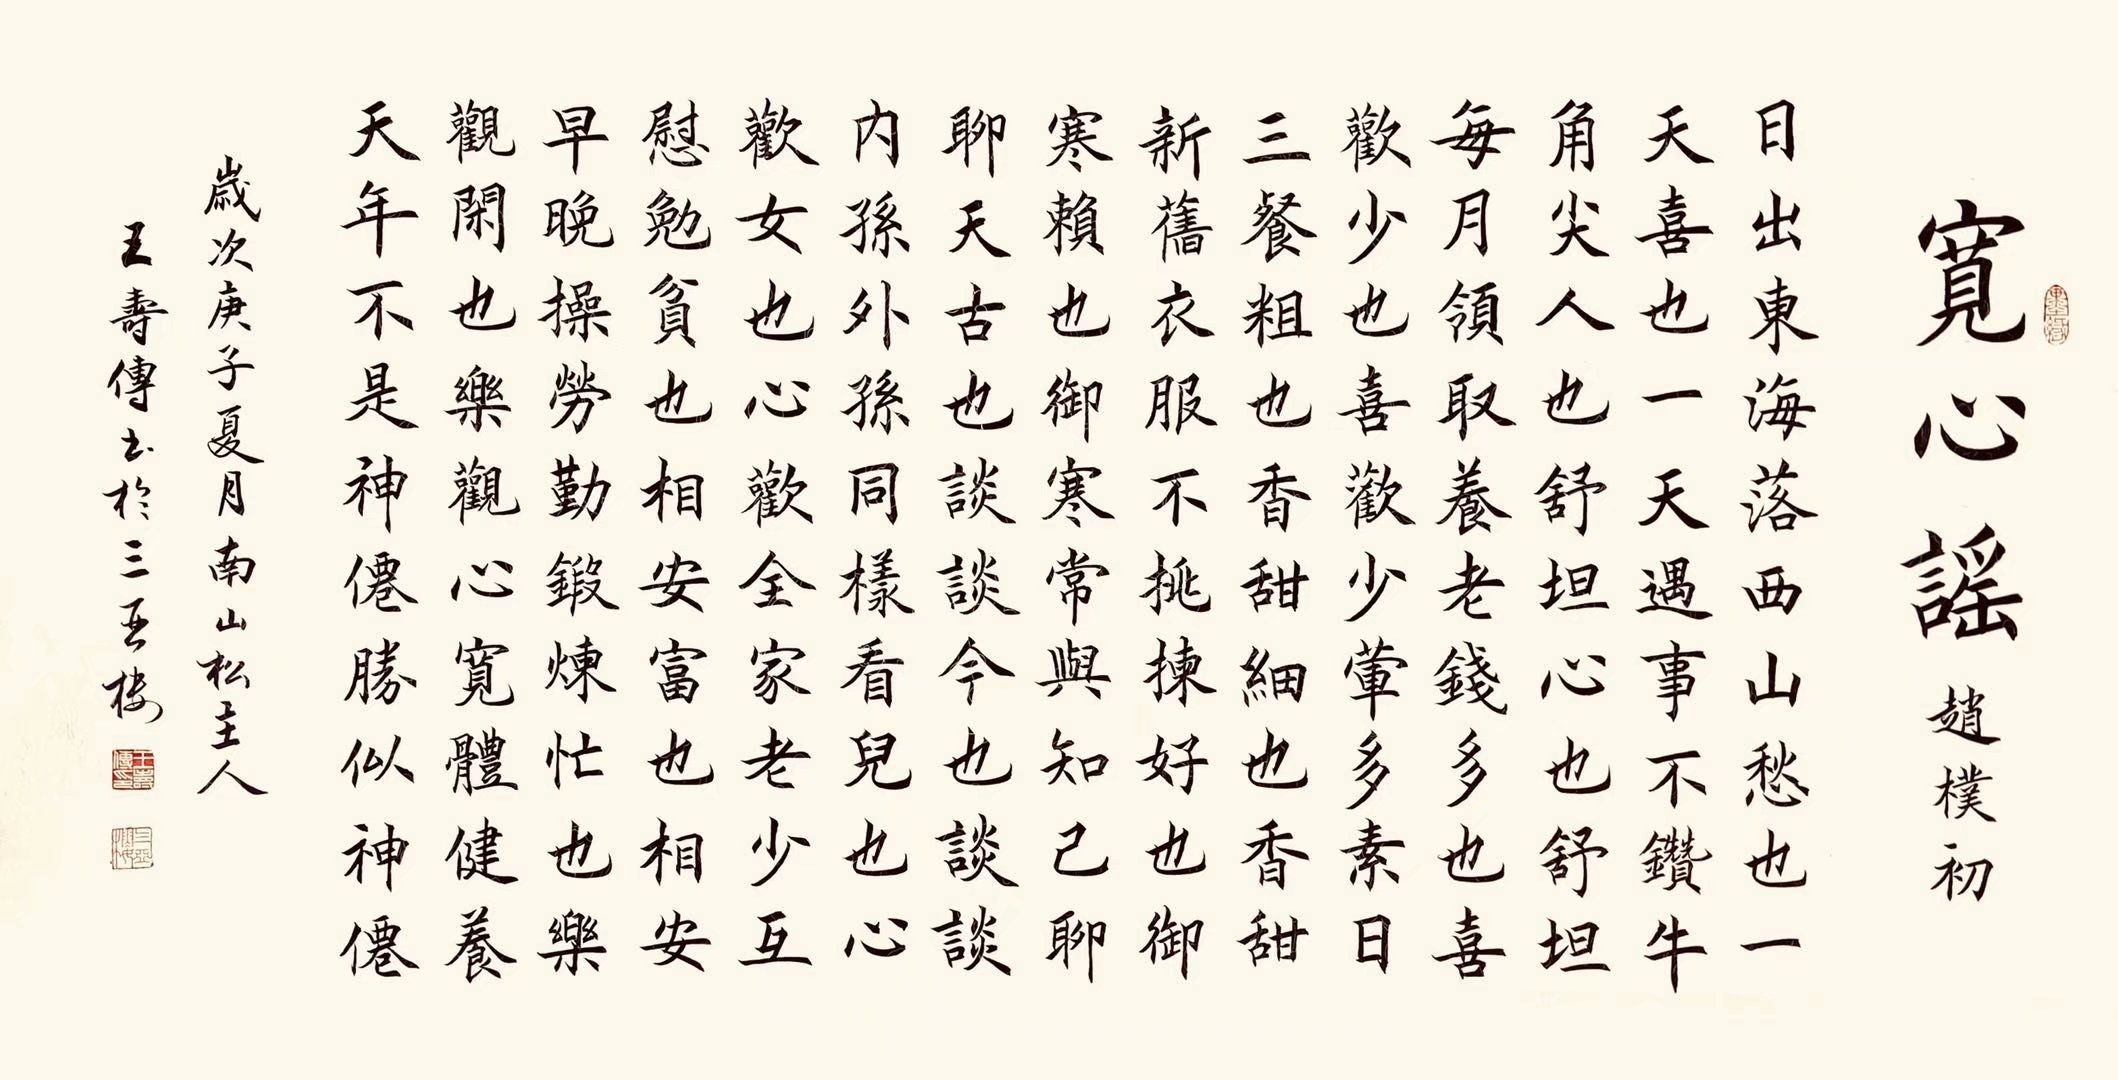 寬心謠 趙樸初
日出東海落西山愁也一
天喜也一天遇事不鑽牛
角尖人也舒坦心也舒坦
每月領取養老錢多也喜
歡少也喜歡少葷多素日
三餐粗也香甜細也香甜
新舊衣服不挑揀好也御
寒賴也御寒常與知己聊
聊天古也談談今也談談
内孫外孫同樣看兒也心
歡女也心歡全家老少互
慰勉貧也相安富也相安
早晚操勞勤鍛煉忙也樂
觀閑也樂觀心寬體健養
天年不是神僊勝似神僊
歲次庚子夏月南山松主人
王壽傳书於三吾樓